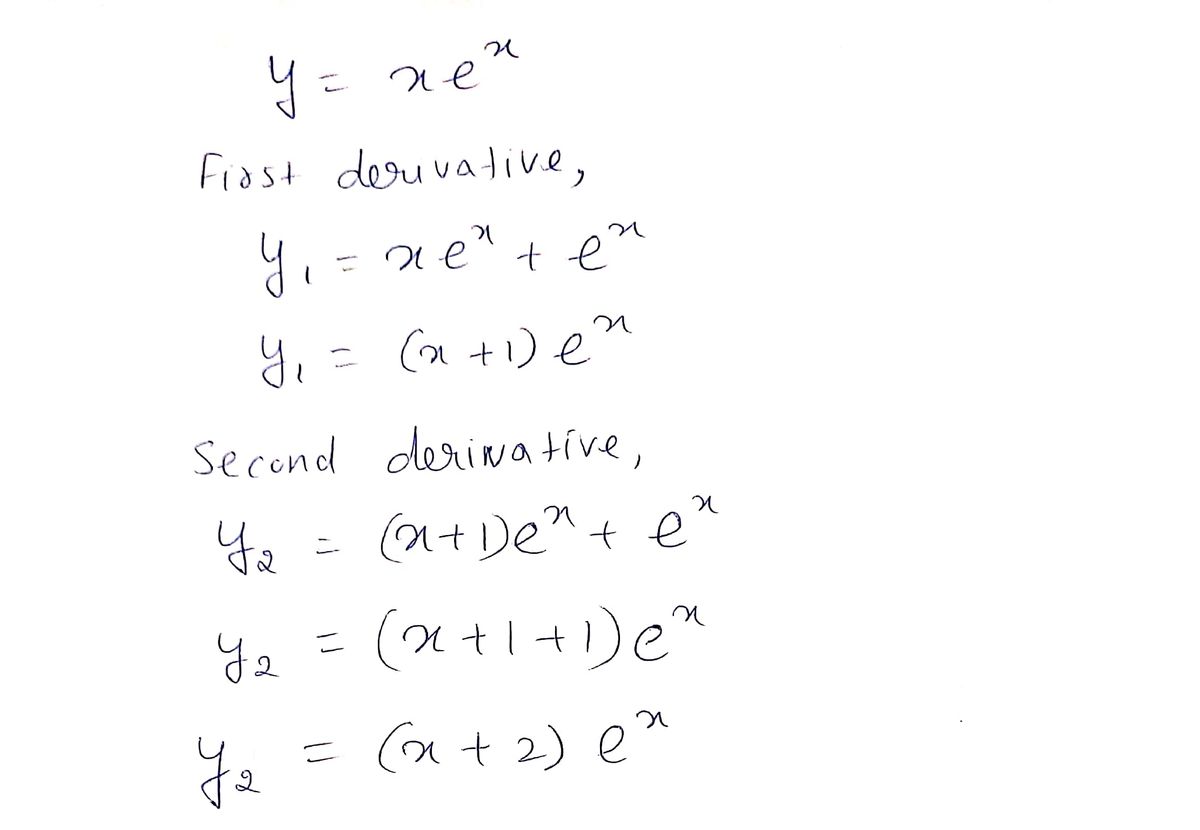 y = xeˣ
First derivative,
y₁ = xeˣ + eˣ
y₁ = (x+1)eˣ
Second derivative,
y₂ = (x+1)eˣ + eˣ
y₂ = (x+1+1)eˣ
y₂ = (x+2)eˣ